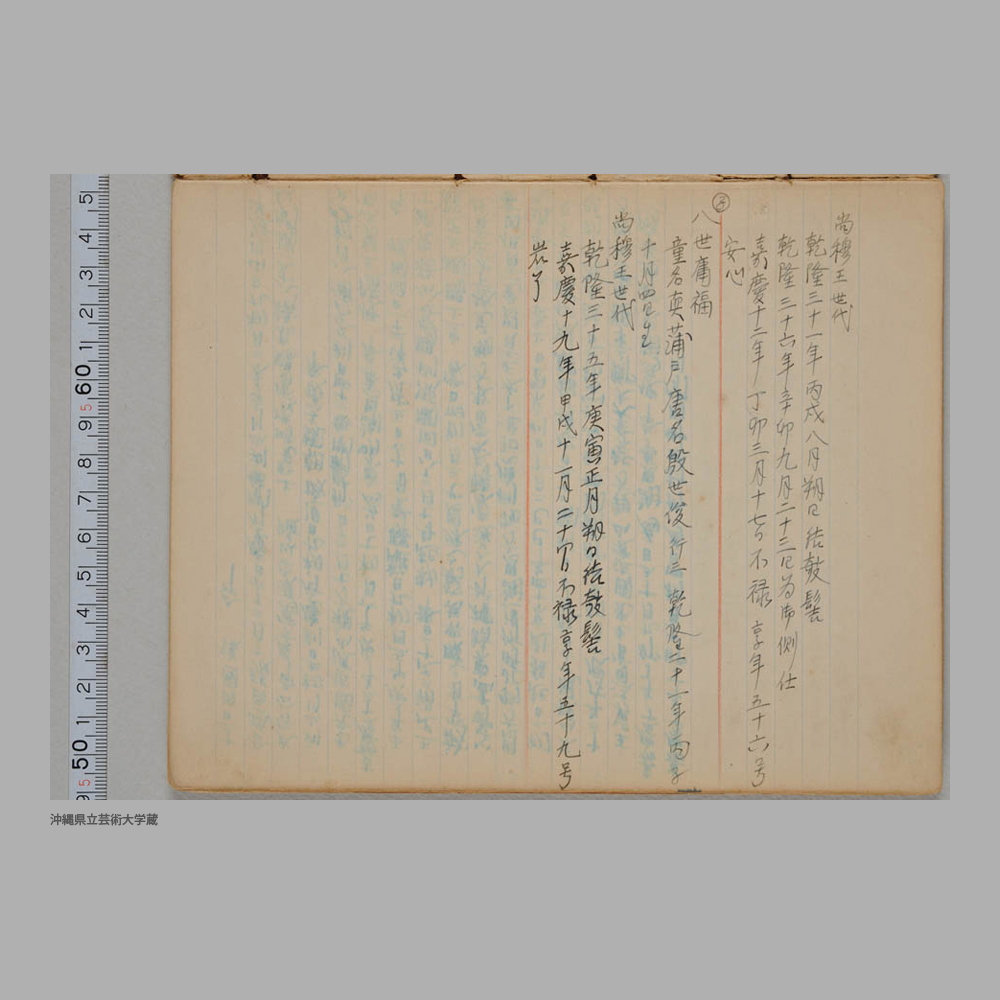 尚穆王世代
乾隆三十一年丙戌八月朔日結敧髻
乾隆三十六年辛卯九月二十三日為御側仕
嘉慶十二年丁卯三月十七日不禄享年五十六号
安心
八世庸福
童名真蒲戸唐名殷世俊行三乾隆二十一年丙子
十月四日生
尚穆王世代
乾隆三十五年庚寅正月朔日結敧髻
嘉慶十九年甲戌十一月二十四日不禄享年五十九号
岩了
5 4 3 2 1 60 9 8 7 6 5 4 3 2 1 50 9
沖縄県立芸術大学蔵